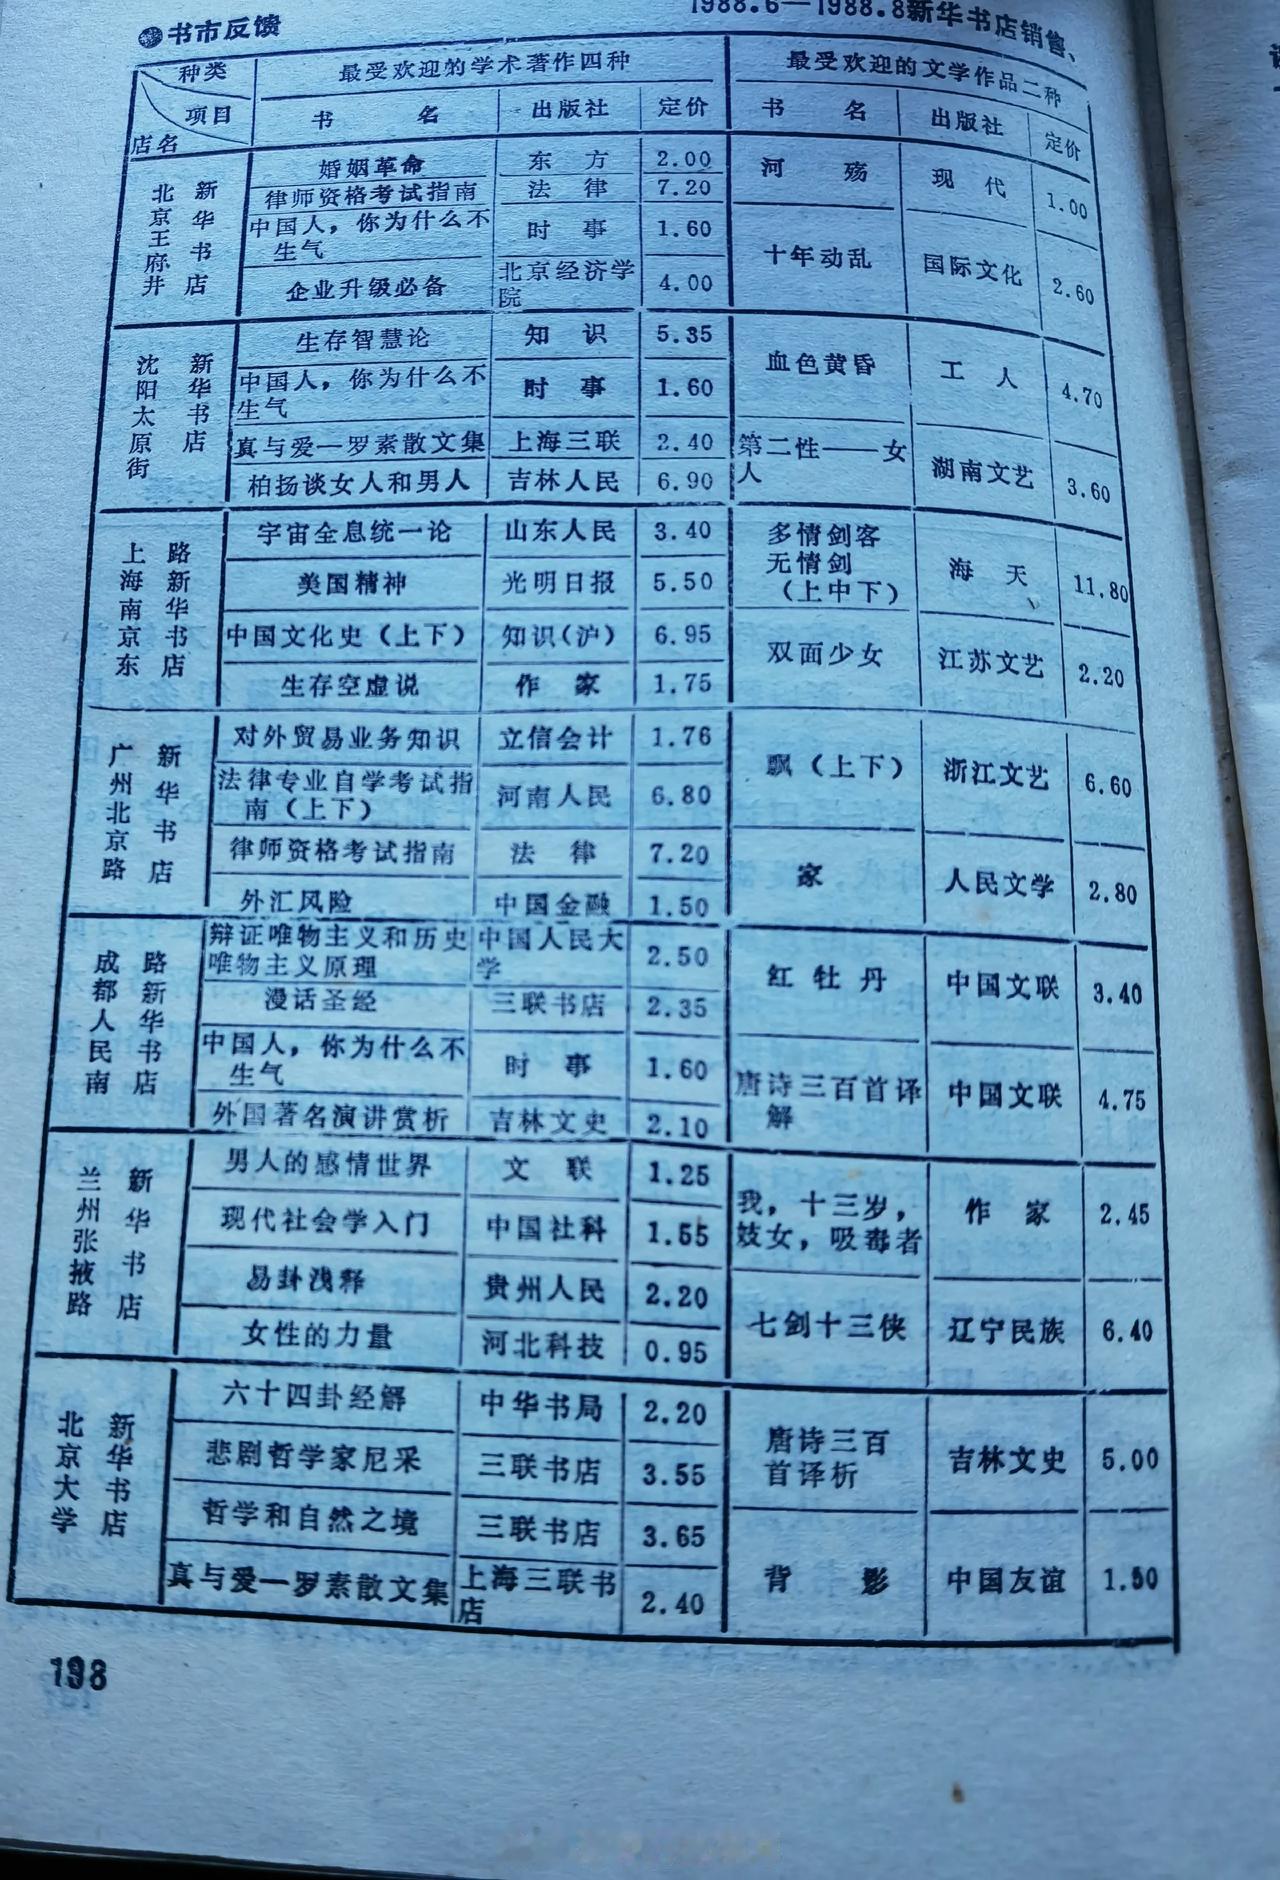 ●书市反馈
1988.6—1988.8新华书店销售、
种类 最受欢迎的学术著作四种 最受欢迎的文学作品二种
项目 书名 出版社 定价 书名 出版社 定价
店名
北京王府井新华书店
婚姻革命 东方 2.00
律师资格考试指南 法律 7.20
中国人，你为什么不
生气 时事 1.60
企业升级必备 北京经济学
院 4.00
河殇 现代 1.00
十年动乱 国际文化 2.60
沈阳太原街新华书店
生存智慧论 知识 5.35
中国人，你为什么不
生气 时事 1.60
真与爱一罗素散文集 上海三联 2.40
柏扬谈女人和男人 吉林人民 6.90
血色黄昏 工人 4.70
第二性——女
人 湖南文艺 3.60
上海南京东路新华书店
宇宙全息统一论 山东人民 3.40
美国精神 光明日报 5.50
中国文化史（上下） 知识（沪） 6.95
生存空虚说 作家 1.75
多情剑客
无情剑
（上中下） 海天 11.80
双面少女 江苏文艺 2.20
广州北京路新华书店
对外贸易业务知识 立信会计 1.76
法律专业自学考试指
南（上下） 河南人民 6.80
律师资格考试指南 法律 7.20
外汇风险 中国金融 1.50
飘（上下） 浙江文艺 6.60
家 人民文学 2.80
成都人民南路新华书店
辩证唯物主义和历史
唯物主义原理 中国人民大
学 2.50
漫话圣经 三联书店 2.35
中国人，你为什么不
生气 时事 1.60
外国著名演讲赏析 吉林文史 2.10
红牡丹 中国文联 3.40
唐诗三百首译
解 中国文联 4.75
兰州张掖路新华书店
男人的感情世界 文联 1.25
现代社会学入门 中国社科 1.55
易卦浅释 贵州人民 2.20
女性的力量 河北科技 0.95
我，十三岁，
妓女，吸毒者 作家 2.45
七剑十三侠 辽宁民族 6.40
北京大学新华书店
六十四卦经解 中华书局 2.20
悲剧哲学家尼采 三联书店 3.55
哲学和自然之境 三联书店 3.65
真与爱一罗素散文集 上海三联书
店 2.40
唐诗三百
首译析 吉林文史 5.00
背影 中国友谊 1.50
198